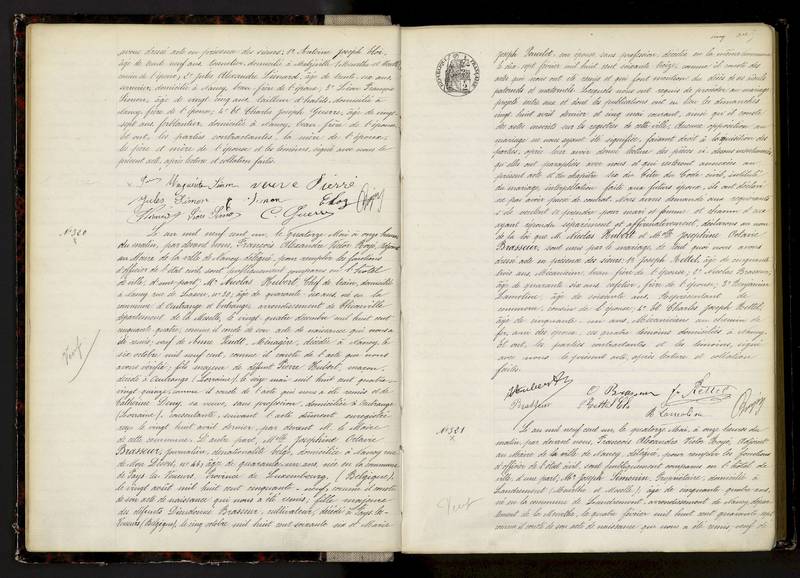 avons dressé acte en présence des sieurs: 1° Antoine Joseph Eloi,
âgé de trente neuf ans, domicilié à (Meurthe et Moselle)
de l'épouse; 2° Jules Alexandre Piénard, âgé de trente six ans,
domicilié à Nancy, beau frère de l'épouse; 3° Léon François
Simon, âgé de vingt cinq ans, tailleur d'habits, domicilié à
Nancy, frère de l'épouse; 4° et Charles Joseph Guerre, âgé de vingt
sept ans, domicilié à Nancy, beau frère de l'épouse
Et ont, les parties contractantes, la mère de l'époux,
le père et mère de l'épouse et les témoins, signé avec nous le
présent acte, après lecture et collation faites.
Marguerite Simon veuve Pierré
Jules Simon Simon Eloy
C. Guerre
N° 320
L'an mil neuf cent un, le quatorze Mai, à onze heures
du matin, par devant nous, François Alexandre Victor Boyé, Adjoint
au Maire de la ville de Nancy, délégué, pour remplir les fonctions
d'officier de l'état civil, sont publiquement comparus en l'hôtel
de ville, d'une part, Mr Nicolas Hubert, Chef de train, domicilié
à Nancy rue N° 30, âgé de quarante-six ans, né en la
commune d' arrondissement de Thionville
département de la Moselle, le vingt quatre décembre mil huit cent
cinquante quatre, comme il conste de son acte de naissance qui nous a
été remis; veuf de Anne Ménagère, décédée à Nancy, le
six octobre mil neuf cent, comme il conste de l'acte que nous
avons vérifié; fils majeur de défunt Pierre Hubert, maçon,
décédé à (Lorraine), le vingt mai mil huit cent quatre-
vingt quinze, comme il conste de l'acte qui nous a été remis et de
Catherine Deny, sa veuve, sans profession, domiciliée à
(Lorraine), consentante, suivant l'acte dûment enregistré
reçu le vingt huit avril dernier, par devant M. le Maire
de cette commune. D'autre part, Melle Joséphine Octavie
Brasseur, journalière, de nationalité belge, domiciliée à Nancy rue
de Mon Désert, n° 46, âgée de quarante-un ans, née en la commune
de Province de Luxembourg, (Belgique),
le vingt août mil huit cent cinquante-neuf, comme il conste
de son acte de naissance qui nous a été remis, fille majeure
de défunts Dieudonné Brasseur, cultivateur, décédé à
(Belgique), le cinq octobre mil huit cent soixante six et Marie
Veuf
Joseph son épouse sans profession, décédée en la même commune
le dix sept février mil huit cent soixante treize, comme il conste des
actes qui nous ont été remis et qui font mention du décès de ses aïeuls
paternels et maternels. Lesquels nous ont requis de procéder au mariage
projeté entre eux et dont les publications ont eu lieu les dimanches
vingt huit avril dernier et cinq mai courant, ainsi qu'il conste
des actes inscrits sur les registres de cette ville; Aucune opposition au
mariage ne nous ayant été signifiée, faisant droit à la réquisition des
parties, après leur avoir donné lecture des pièces ci-dessus mentionnées,
qu'elles ont paraphées avec nous et qui resteront annexées au
présent acte et du chapitre six du titre du Code civil, intitulé
du mariage, interpellation faite aux futurs époux, ils ont déclaré
ne pas avoir passé de contrat. Nous avons demandé aux requérants
s'ils veulent se prendre pour mari et femme et chacun d'eux
ayant répondu séparément et affirmativement, déclarons au nom
de la loi que M. Nicolas Hubert et Melle Joséphine Octavie
Brasseur, sont unis par le mariage, de tout quoi nous avons
dressé acte en présence des sieurs: 1° Joseph Rettel, âgé de cinquante
trois ans, Mécanicien, beau frère de l'épouse; 2° Nicolas Brasseur,
âgé de quarante six ans, cafetier, frère de l'épouse; 3° Benjamin
Lamoline, âgé de soixante ans, Représentant de
commerce, cousin de l'épouse; 4° Et Charles Joseph Rettel,
âgé de vingt-un ans, Mécanicien au chemin de
fer, ces quatre témoins domiciliés à Nancy.
Et ont, les parties contractantes et les témoins, signé
avec nous le présent acte, après lecture et collation
faites.
Hubert N. O Brasseur J. Rettel
Brasseur Rettel Ch. B. Lamoline
N° 321
L'an mil neuf cent un, le quatorze Mai, à onze heures du
matin, par devant nous, François Alexandre Victor Boyé, Adjoint
au Maire de la ville de Nancy, délégué, pour remplir les fonctions
d'officier de l'état civil, sont publiquement comparus en l'hôtel de
ville, d'une part, Mr Joseph Simonin, Propriétaire, domicilié à
Landremont (Meurthe et Moselle), âgé de cinquante quatre ans,
né en la commune de arrondissement de Nancy, départe-
ment de la Meurthe, le quatre février mil huit cent quarante sept
comme il conste de son acte de naissance qui nous a été remis, veuf de
Veuf